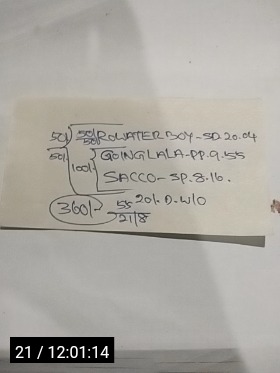 50/ 50/ ROWATERBOY - SD. 20.04
50/ GOINGLALA - PP. 9.55
100/ SACCO - SP. 8.10.
360/- 5S 20/- D. W/O
21/8
21 / 12:01:14